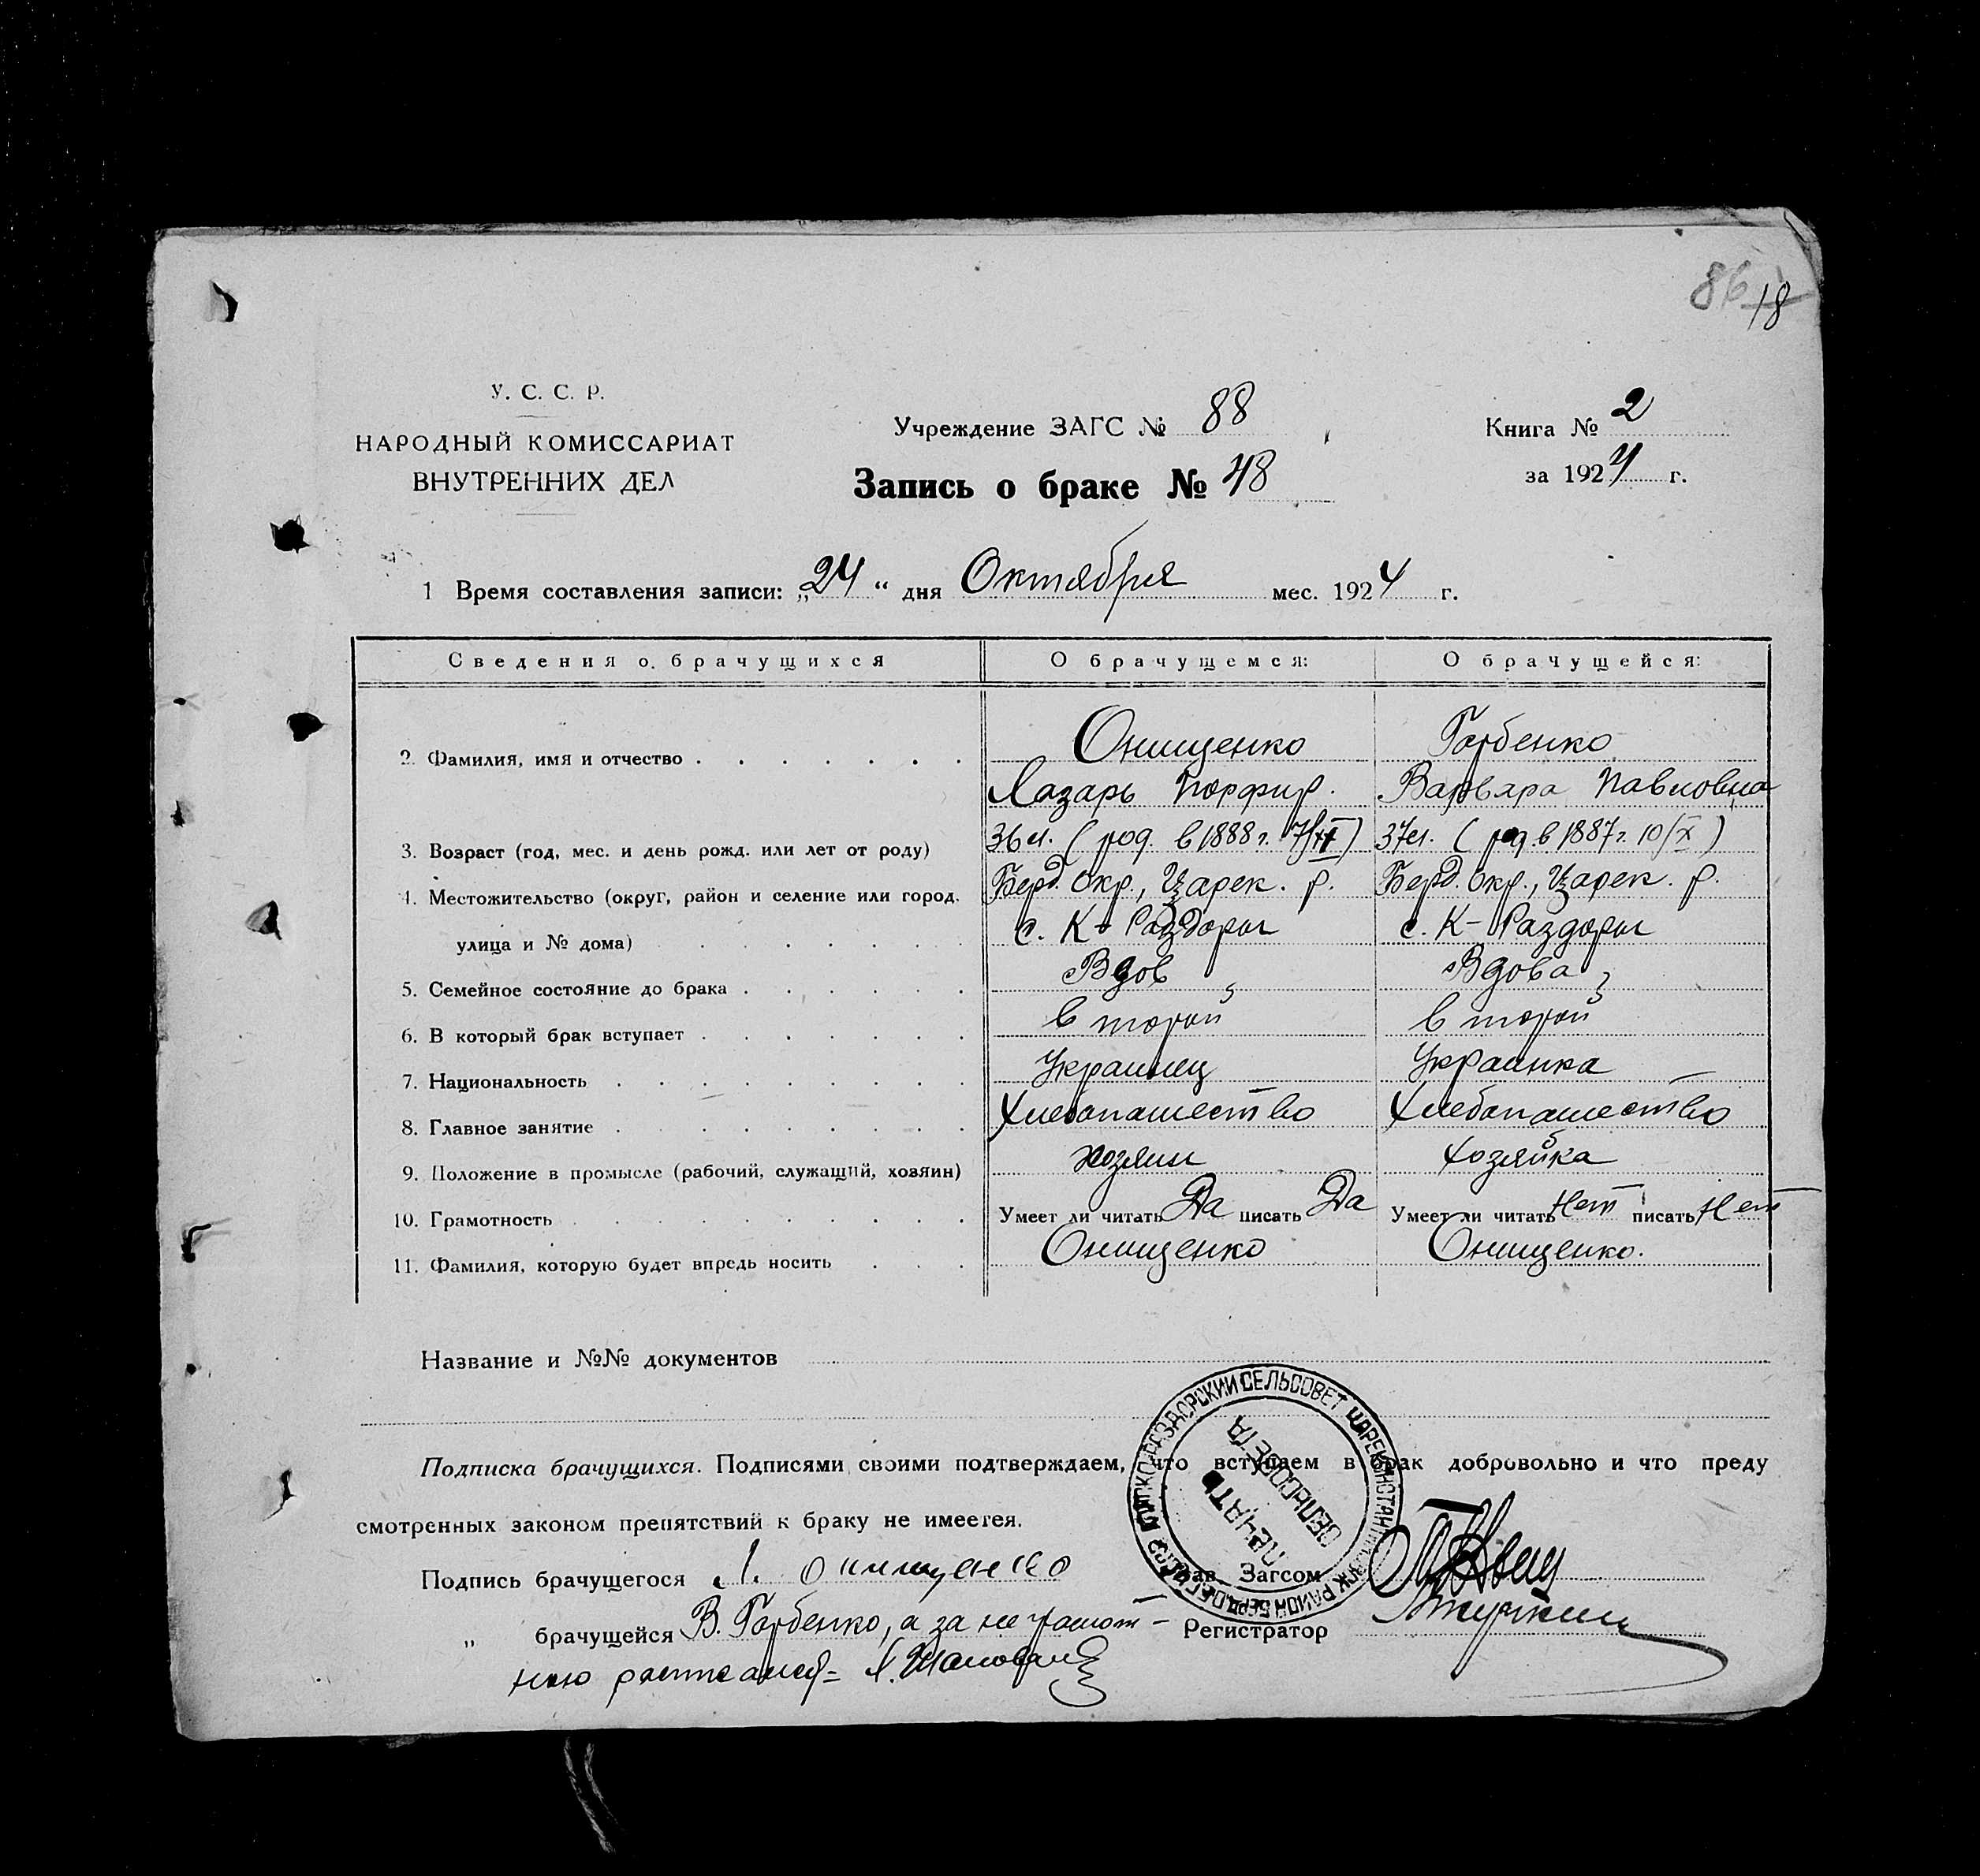 86 18
У. С. С. Р.
НАРОДНЫЙ КОМИССАРИАТ
ВНУТРЕННИХ ДЕЛ
Учреждение ЗАГС № 88
Запись о браке № 48
Книга № 2
за 1924 г.
1 Время составления записи: „24“ дня Октября мес. 1924 г.
Сведения о брачущихся О брачущемся: О брачущейся:
2. Фамилия, имя и отчество Онищенко Горбенко
Лазарь Порфир. Варвара Павловна
3. Возраст (год, мес. и день рожд. или лет от роду) 36 л. (род. в 1888 г.) 37 л. (род. в 1887 г. 10/X)
4. Местожительство (округ, район и селение или город, Берд. окр., Царек. р. Берд. окр., Царек. р.
улица и № дома) с. К-Раздоры с. К-Раздоры
5. Семейное состояние до брака Вдов Вдова
6. В который брак вступает второй второй
7. Национальность Украинец Украинка
8. Главное занятие Хлебопашество Хлебопашество
9. Положение в промысле (рабочий, служащий, хозяин) хозяин хозяйка
10. Грамотность Умеет ли читать Да писать Да Умеет ли читать Нет писать Нет
11. Фамилия, которую будет впредь носить Онищенко Онищенко.
Название и №№ документов
Подписка брачущихся. Подписями своими подтверждаем, что вступаем в брак добровольно и что преду
смотренных законом препятствий к браку не имеется.
РАЗДОРСКИЙ СЕЛЬСОВЕТ ЦАРЕКОНСТАНТИНОВСК РАЙОН
ПЕЧАТЬ
СЕЛЬСОВЕТА
Подпись брачущегося Л. Онищенко Зав. Загсом
„ брачущейся В. Горбенко, а за не грамот- Регистратор
ную